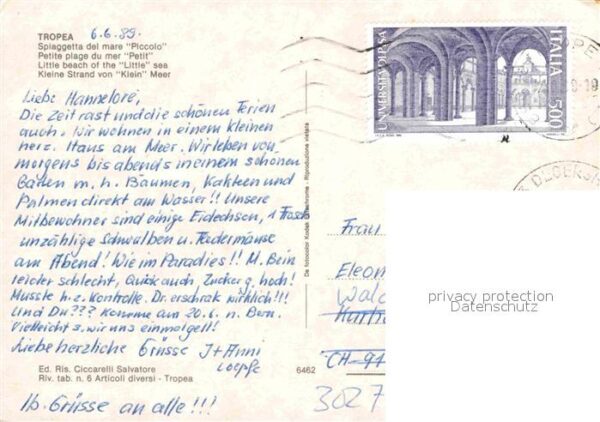 TROPEA 6.6.89.
Spiaggetta del mare "Piccolo"
Petite plage du mer "Petit"
Little beach of the "Little" sea
Kleine Strand von "Klein" Meer
Liebe Hannelore,
Die Zeit rast und die schönen Ferien
auch. Wir wohnen in einem kleinen
herz. Haus am Meer. Wir leben von
morgens bis abends in einem schönen
Garten m. h. Bäumen, Kakteen und
Palmen direkt am Wasser!! Unsere
Mitbewohner sind einige Eidechsen, 1 Frosch
unzählige Schwalben u. Fledermäuse
am Abend! Wie im Paradies!! M. Bein
leider schlecht, Quick auch, Zucker g. hoch!
Musste h.z. Kontrolle. Dr. erschrak wirklich!!!
Und Du??? Komme am 20.6. n. Bern.
Vielleicht s. wir uns einmal gell!
Liebe herzliche Grüsse J + Anni
Loepfe
Ed. Ris. Ciccarelli Salvatore
Riv. tab. n. 6 Articoli diversi - Tropea
6462
lb. Grüsse an alle!!!
Riproduzione vietata
UNIVERSITÀ DI PISA
ITALIA 500
Frau
Eleon
Wald
CH-97
3027
privacy protection
Datenschutz